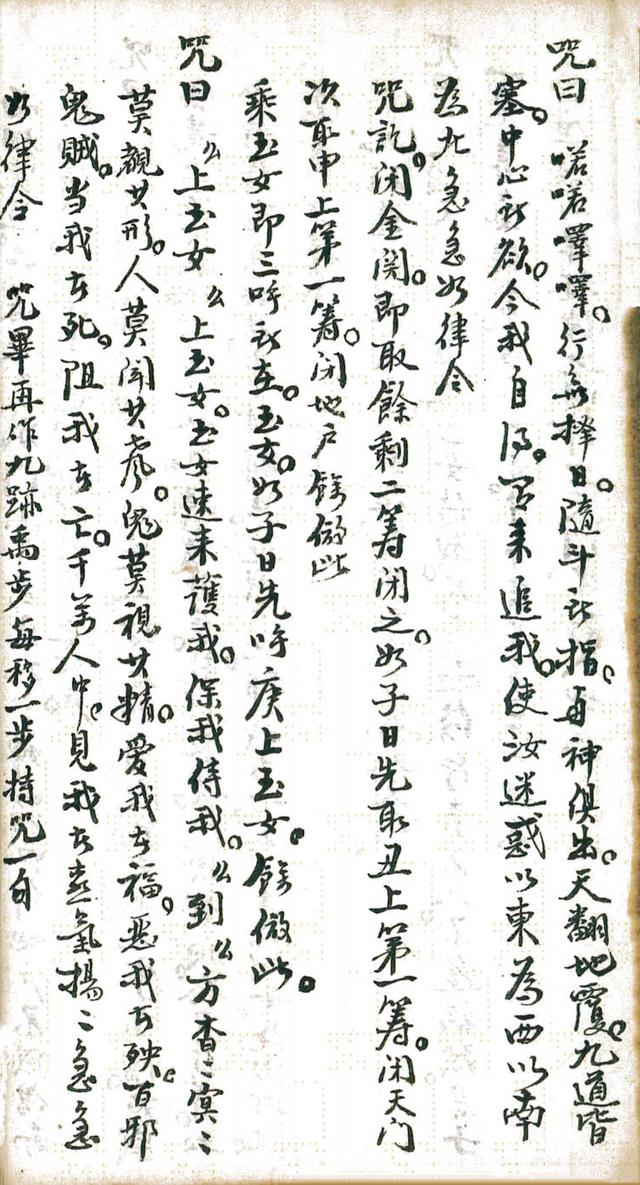 咒曰 喏喏㘁㘁。行無择日。隨斗所指。与神俱出。天翻地覆。九道皆
塞。中心所欲。令我自得。百来追我。使汝迷惑以東為西以南
為北急急如律令
咒訖。闭金関。即取餘剩二筹闭之。如子日先取丑上第一筹。闭天门
次取申上第一筹。闭地户餘倣此
乘玉女即三呼所在。玉女。如子日先呼庚上玉女。餘倣此。
咒曰 厶上玉女 厶上玉女。玉女速来護我。保我侍我。厶到厶方杳〻冥〻
莫覩其形。人莫闻其声。鬼莫視其精。愛我者福。惡我者殃。百邪
鬼贼。当我者死。阻我者亡。千万人中。見我者喜氣揚〻急急
如律令 咒畢再作九跡禹步每移一步持咒一句